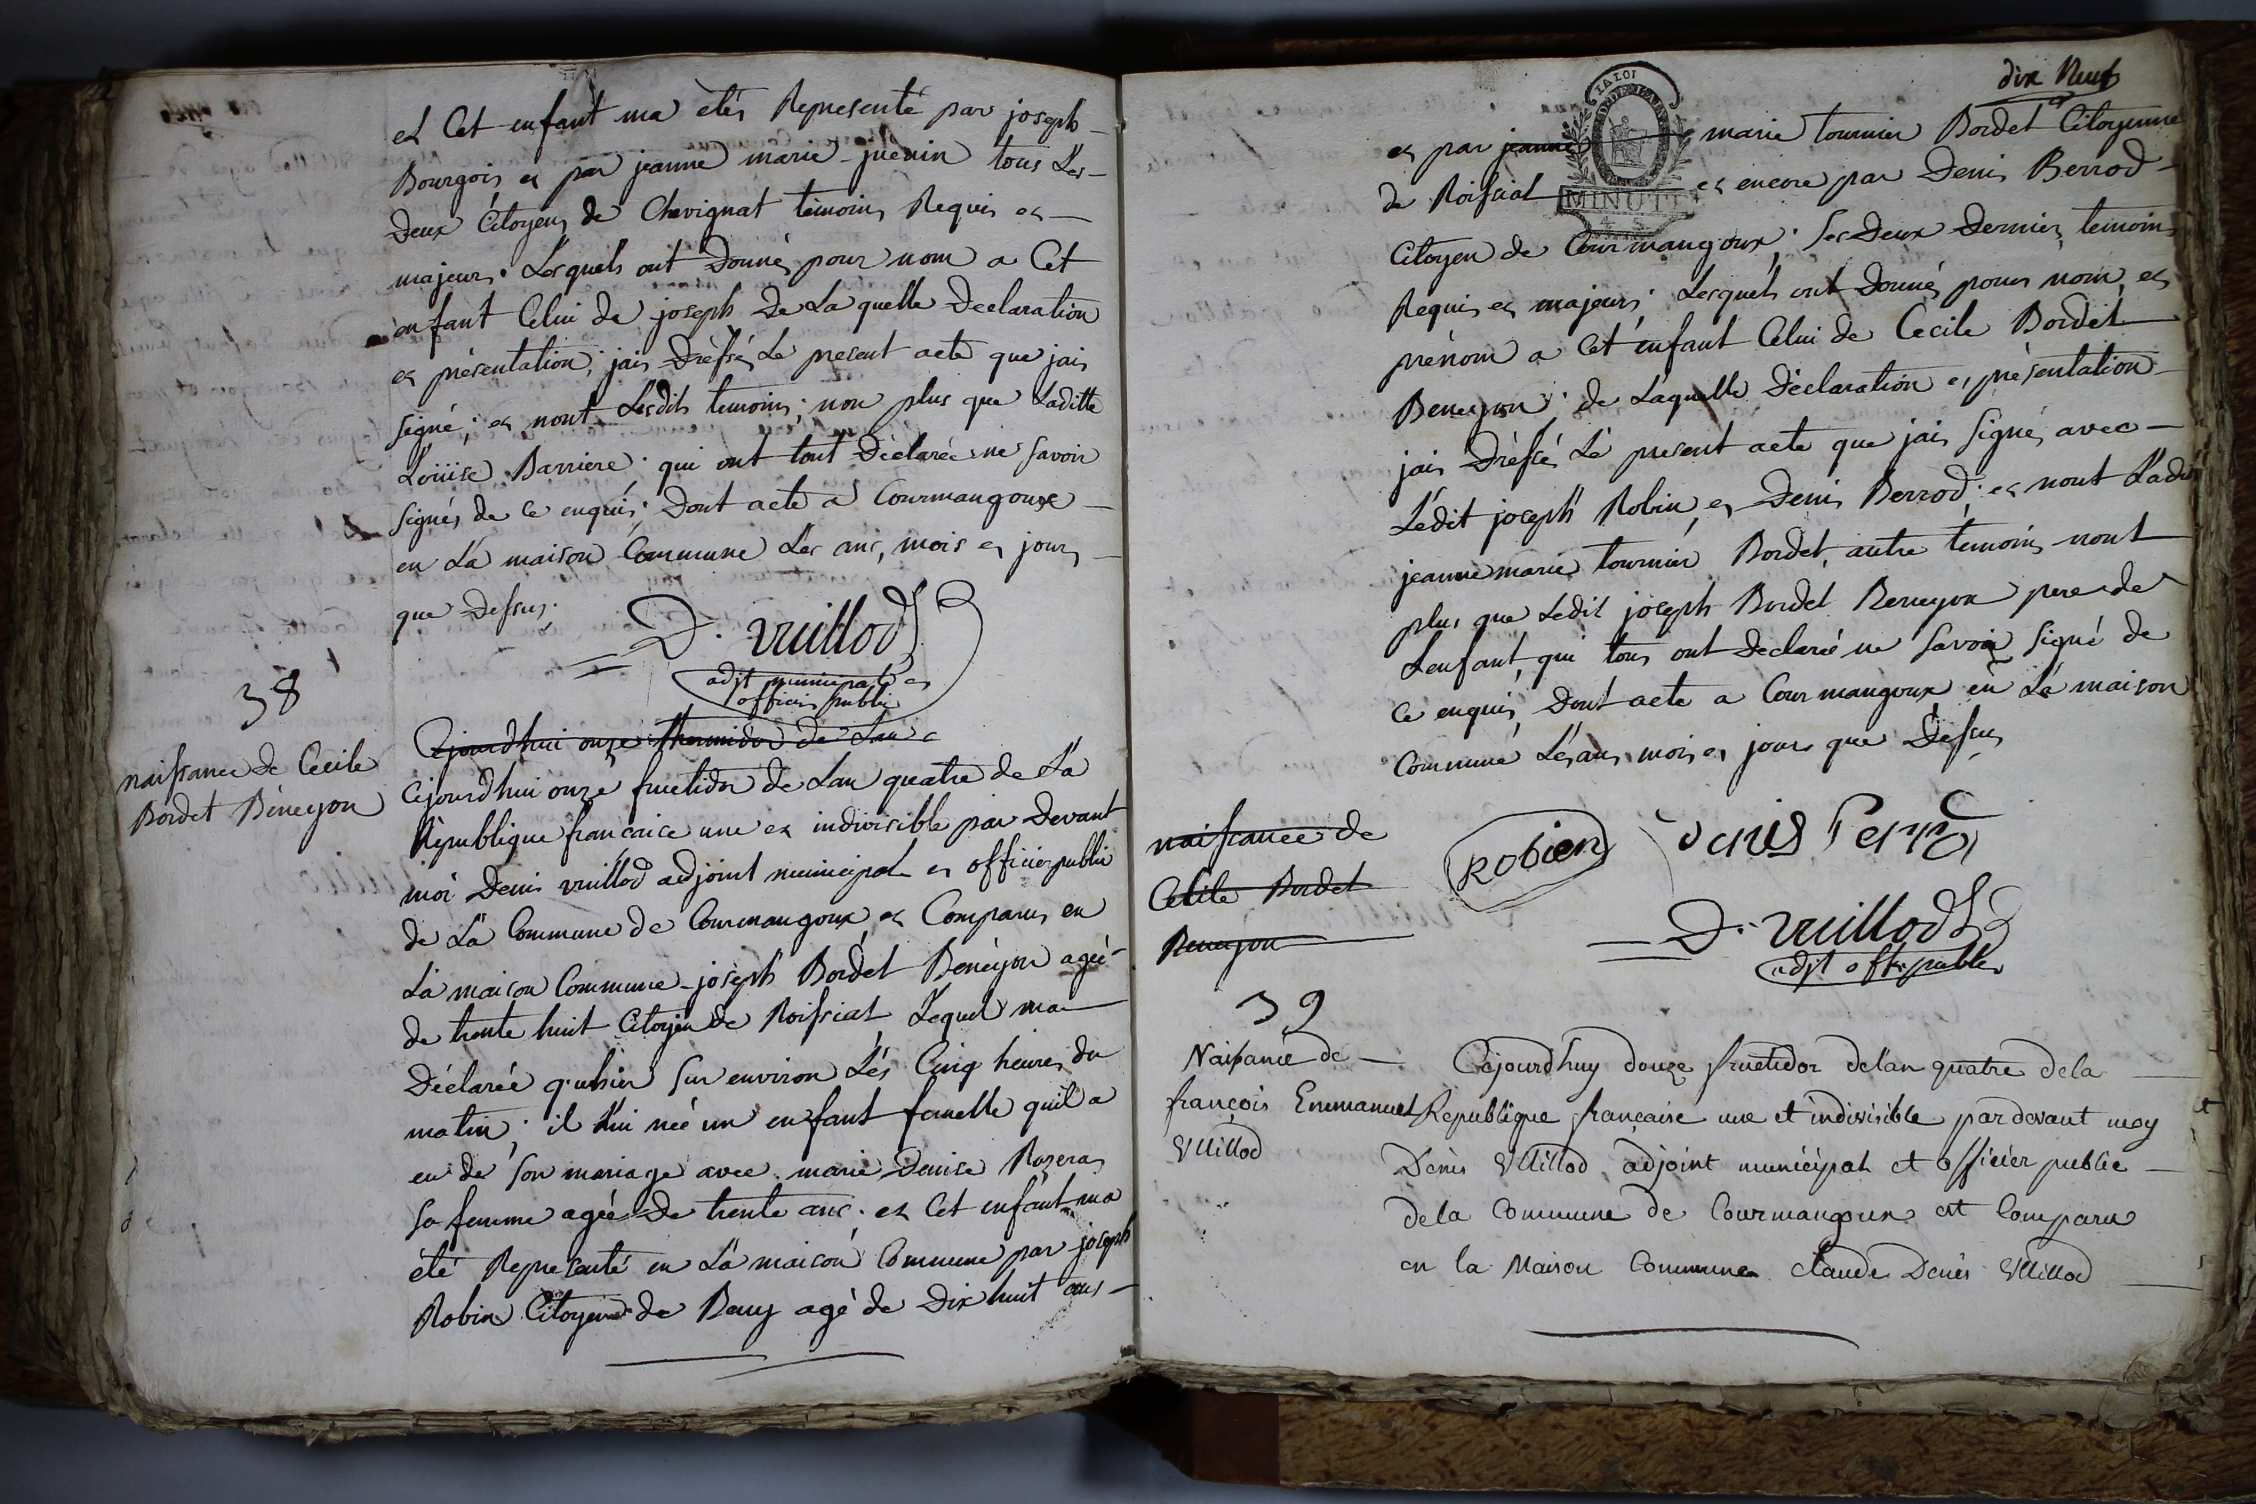 et Cet enfant ma étés Representé par joseph
Bourgois et par jeanne marie juenin tous Les
Deux Citoyens de Chevignat témoins Requis et
majeurs. Lesquels ont Donnés pour nom a Cet
enfant Celui de joseph De La quelle Declaration
et présentation, jais Dréssés Le present acte que jais
signé; et nont Lesdits temoins; non plus que Laditte
Loüise Barriere. qui ont tout Déclarée ne savoir
signés de ce enquis; Dont acte a Courmangoux
en La maison Commune Les ans, mois et jours
que Dessus;
D. vuillod
adjt municipal et
officier public
38
naissance de Cecile
Bordet Bèneyon
Cejourdhui onze thermidor de Lan
Cejourdhui onze fructidor de Lan quatre de La
République francaice une et indivisible par Devant
moi Denis vuillod adjoint municipal et officier public
de La Commune de Courmangoux et Comparus en
La maison Commune joseph Bordet Benéyon ageé
de trente huit Citoyen de Roissiat Lequel ma
Déclarée quhier sur environ Lés Cinq heures du
matin; il Lui née un enfant femelle quil a
eu de son mariage avec marie Denise Rozeras
sa femme agée De trente ans. et Cet enfant ma
été Representé en La maison Commune par joseph
Robin Citoyen de Beny agé de Dix huit ans
dix Neuf
LA LOI
MINUTE
et par jeanne marie tournier Bordet Citoyenne
de Roissiat et encore par Denis Berrod
Citoyen de Courmangoux; ses Deux Dernier temoins
Requis et majeurs; Lesquels ont Donnés pour nom et
prénom a Cet enfant Celui de Cecile Bordet
Beneyon; de Laquelle Déclaration et présentation
jais Dréssés Lé present acte que jais signés avec
Lédit joseph Robin et Denis Berrod; et nont Ladite
jeanne marie tournier Bordet, autre temoins nont
plus que Ledit joseph Bordet Beneyon pere de
Lenfant, qui tous ont Declarée ne savoir signé de
ce enquis, Dont acte a Courmangoux en La maison
Commune Lésans mois et jours que Déssus
Robien Denis Berrod
D. vuillod
adjt offr public
naissance de
Cecile Bordet
Beneyon
39
Naissance de
françois Emmanuel
Vuillod
Cejourdhuy douze fructidor delan quatre de la
Republique française une et indivisible pardevant moy
Denis Vuillod adjoint municipal et officier public
dela Commune de Courmangoux est Comparu
en la Maison Commune claude Denis Vuillod